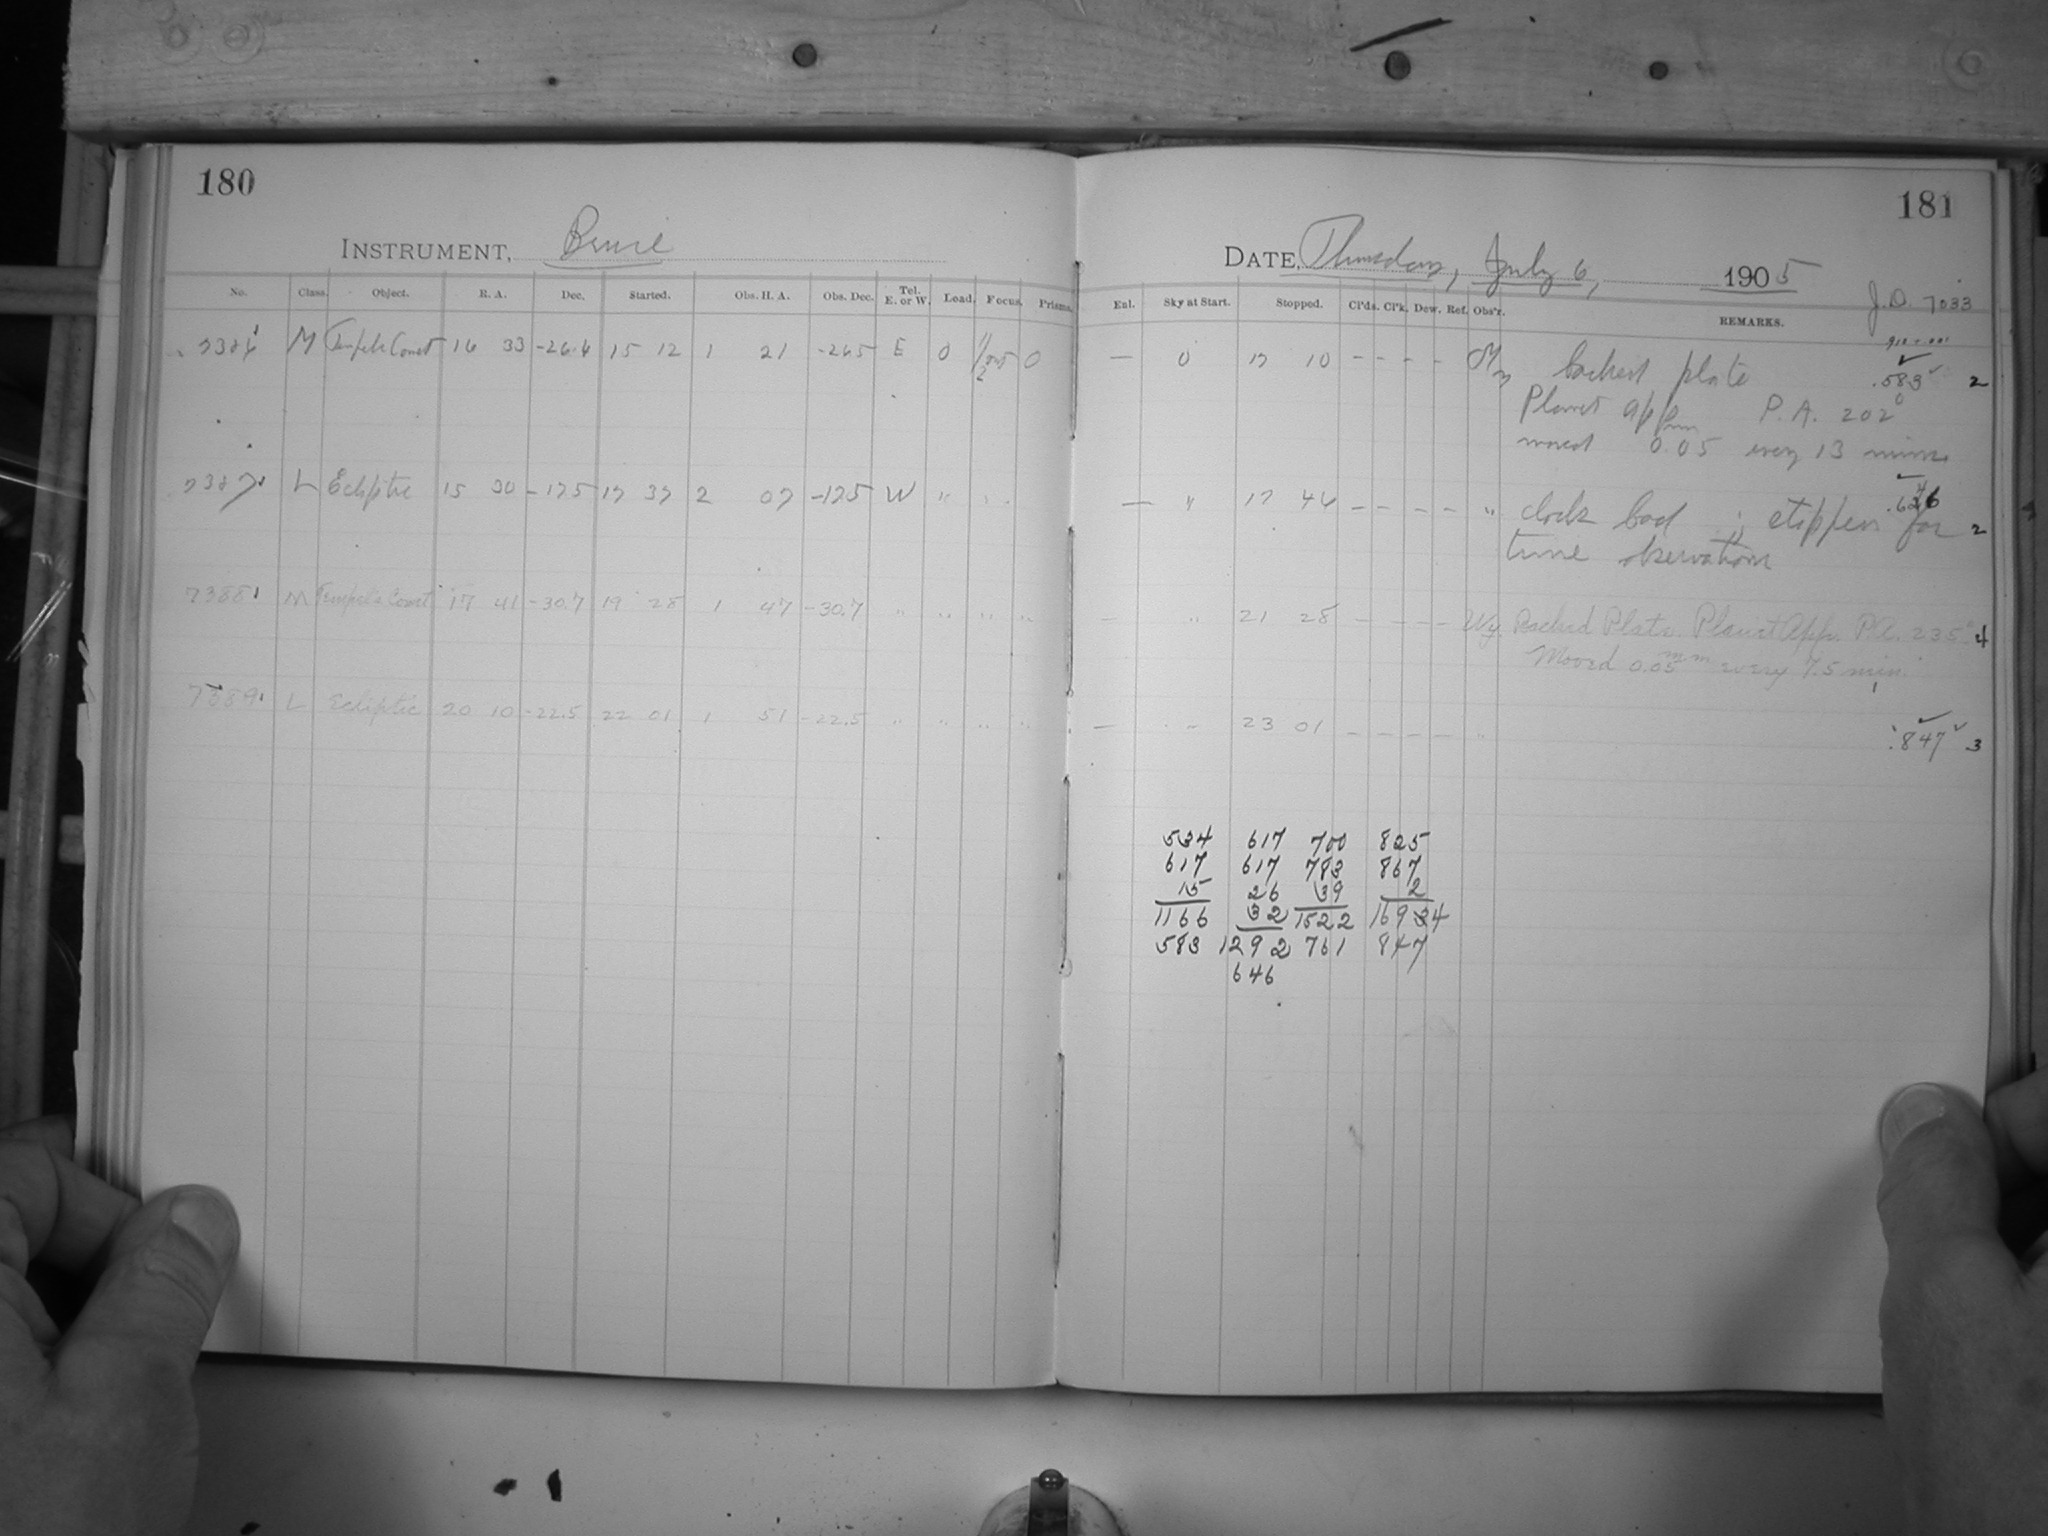 180
INSTRUMENT, Bruce
No. Class. Object. R. A. Dec. Started. Obs. H. A. Obs. Dec. Tel. E. or W. Load. Focus. Prisms.
7386 M Tempels Comet 16 33 -26.4 15 12 1 21 -26.5 E 0 0
7387 L Ecliptic 15 30 -17.5 17 37 2 07 -17.5 W " " "
7388 M Tempels Comet 17 41 -30.7 19 28 1 47 -30.7 " " " "
7389 L Ecliptic 20 10 -22.5 22 01 1 51 -22.5 " " " "
181
DATE, Thursday, July 6, 1905
J.D. 7033
Enl. Sky at Start. Stopped. Cl'ds. Cl'k. Dew. Ref. Obs'r. REMARKS.
— 0 17 10 - - - - Backed plate .583 2
Planet app P.A. 202°
moved 0.05 every 13 mins
— " 17 46 - - - - " clock bad ; stopped for 2
time observations
— " 21 28 - - - - Wy. Backed Plate. Planet App. P.A. 235° 4
Moved 0.05mm every 7.5 min.
— " 23 01 - - - - " .847 3
534 617 700 825
617 617 783 867
15 26 39 2
1166 32 1522 1694
583 1292 761 847
646